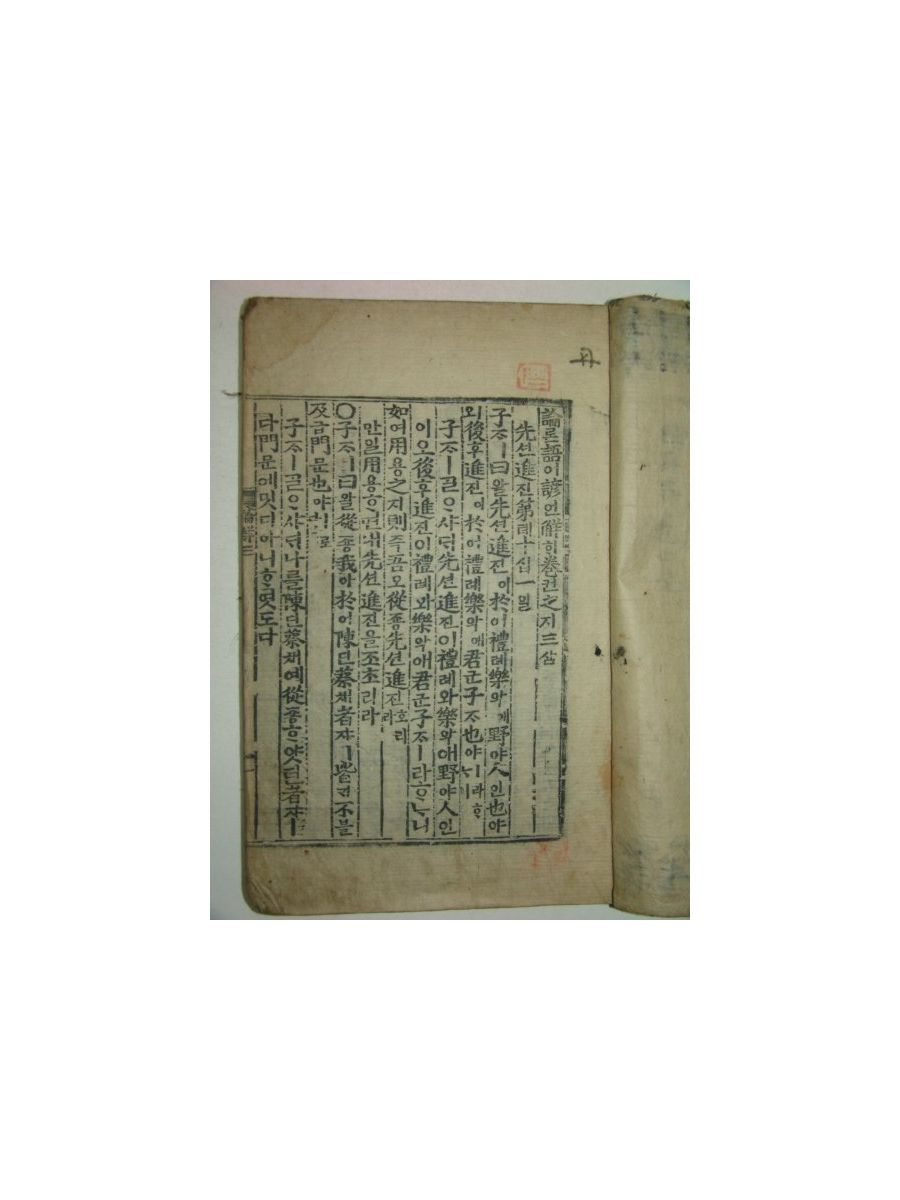 論론語어諺언解ᄒᆡ卷권之지三삼
先션進진第뎨十십一일
子ᄌᆞㅣ曰왈先션進진이於어禮례樂악애野야人인也야
외後후進진이於어禮례樂악애君군子ᄌᆞ也야ㅣ라ᄒᆞ
子ᄌᆞㅣᄀᆞᆯᄋᆞ샤ᄃᆡ先션進진이禮례와樂악애野야人인
이오後후進진이禮례와樂악애君군子ᄌᆞㅣ라ᄒᆞᄂᆞ니
如여用용之지則즉吾오從죵先션進진호리라
만일用용ᄒᆞ면내先션進진을조초리라
○子ᄌᆞㅣ曰왈從죵我아於어陳딘蔡채者쟈ㅣ皆ᄀᆡ不블
及급門문也야ㅣ로
子ᄌᆞㅣᄀᆞᆯᄋᆞ샤ᄃᆡ나를陳딘蔡채예從죵ᄒᆞ얏던者쟈ㅣ
다門문에밋디아니ᄒᆞ엿도다